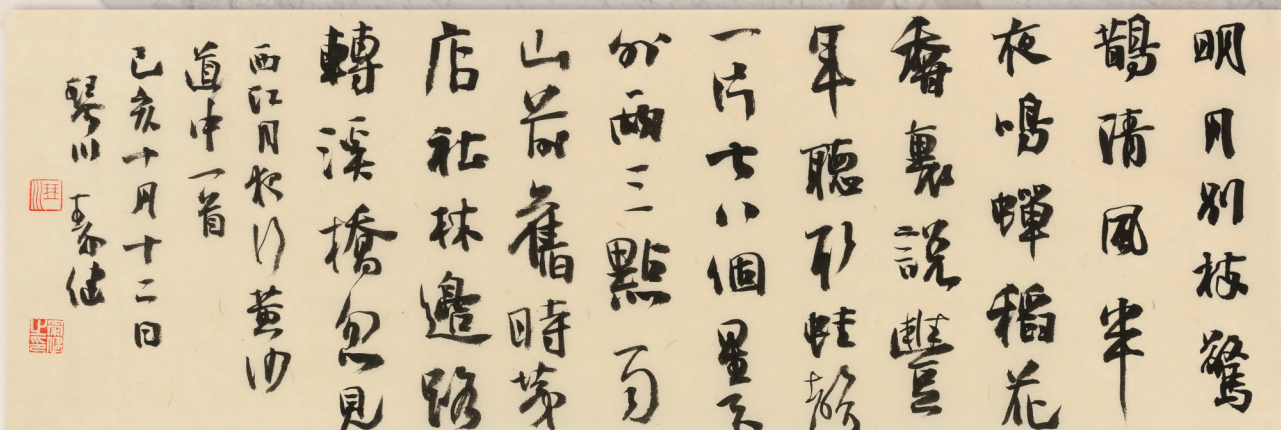 明月別枝驚
鵲清風半
夜鳴蟬稻花
香裏説豐
年聽取蛙聲
一片七八個星天
外兩三點雨
山前舊時茅
店社林邊路
轉溪橋忽見
西江月夜行黃沙
道中一首
己亥十月十二日
琴川 健